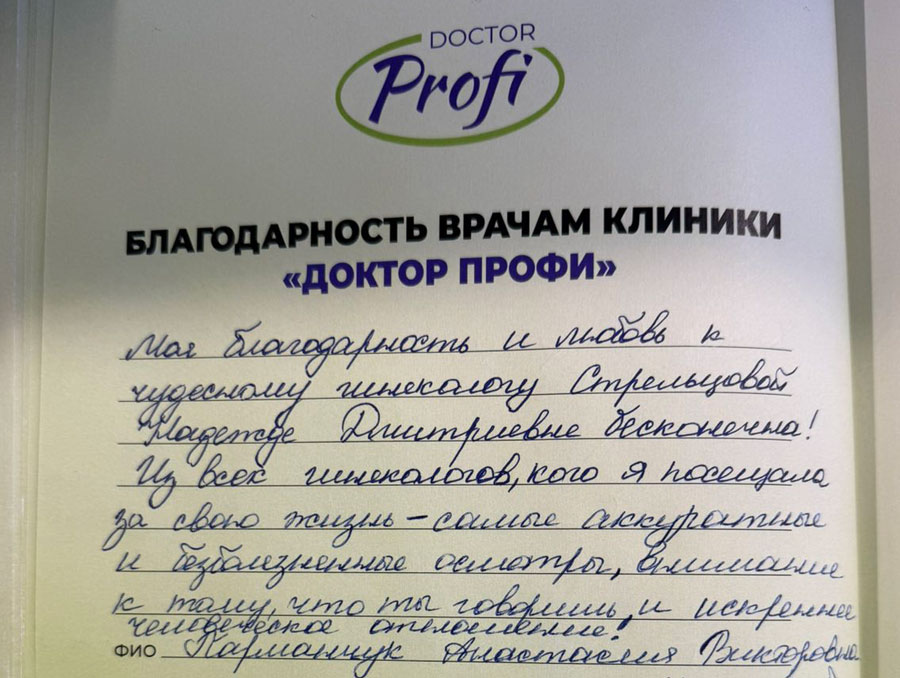 DOCTOR
Profi
БЛАГОДАРНОСТЬ ВРАЧАМ КЛИНИКИ
«ДОКТОР ПРОФИ»
Моя благодарность и любовь к
чудесному гинекологу Стрельцовой
Надежде Дмитриевне бесконечна!
Из всех гинекологов, кого я посещала
за свою жизнь – самые аккуратные
и безболезненные осмотры, внимание
к тому, что ты говоришь, и искреннее
человеческое отношение!
ФИО Парманчук Анастасия Викторовна